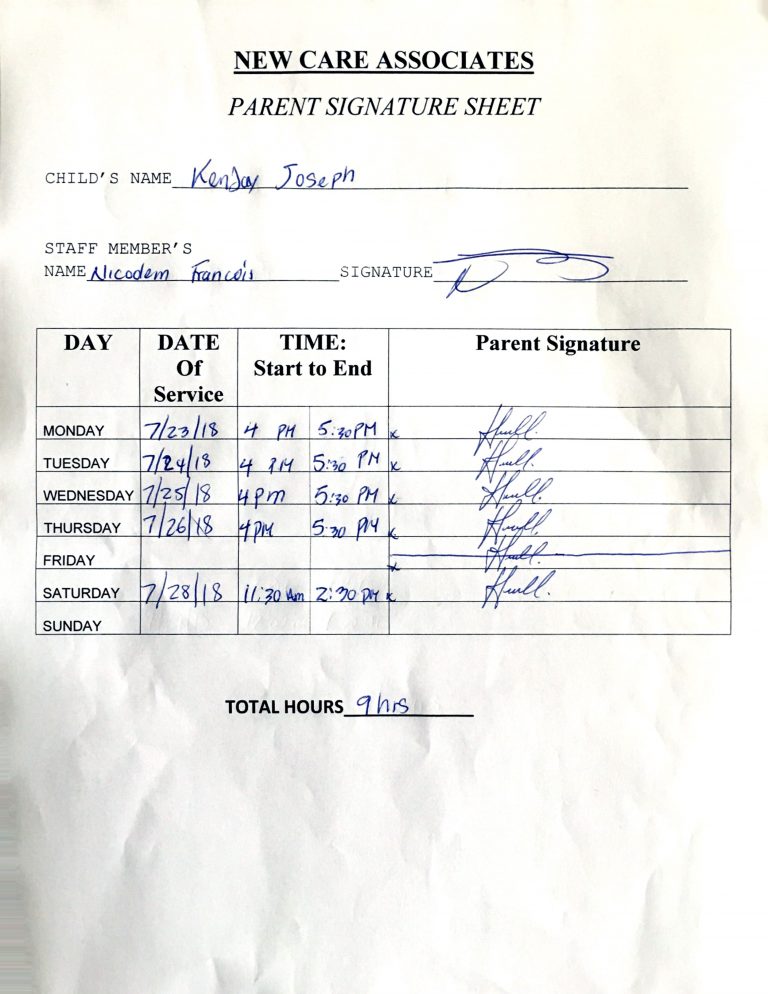 NEW CARE ASSOCIATES
PARENT SIGNATURE SHEET
CHILD'S NAME KenJay Joseph
STAFF MEMBER'S
NAME Nicodem Francois SIGNATURE
DAY DATE Of Service TIME: Start to End Parent Signature
MONDAY 7/23/18 4 PM 5:30PM x
TUESDAY 7/24/18 4 PM 5:30 PM x
WEDNESDAY 7/25/18 4pm 5:30 PM x
THURSDAY 7/26/18 4PM 5:30 PM x
FRIDAY x
SATURDAY 7/28/18 11:30 Am 2:30 PM x
SUNDAY
TOTAL HOURS 9hrs